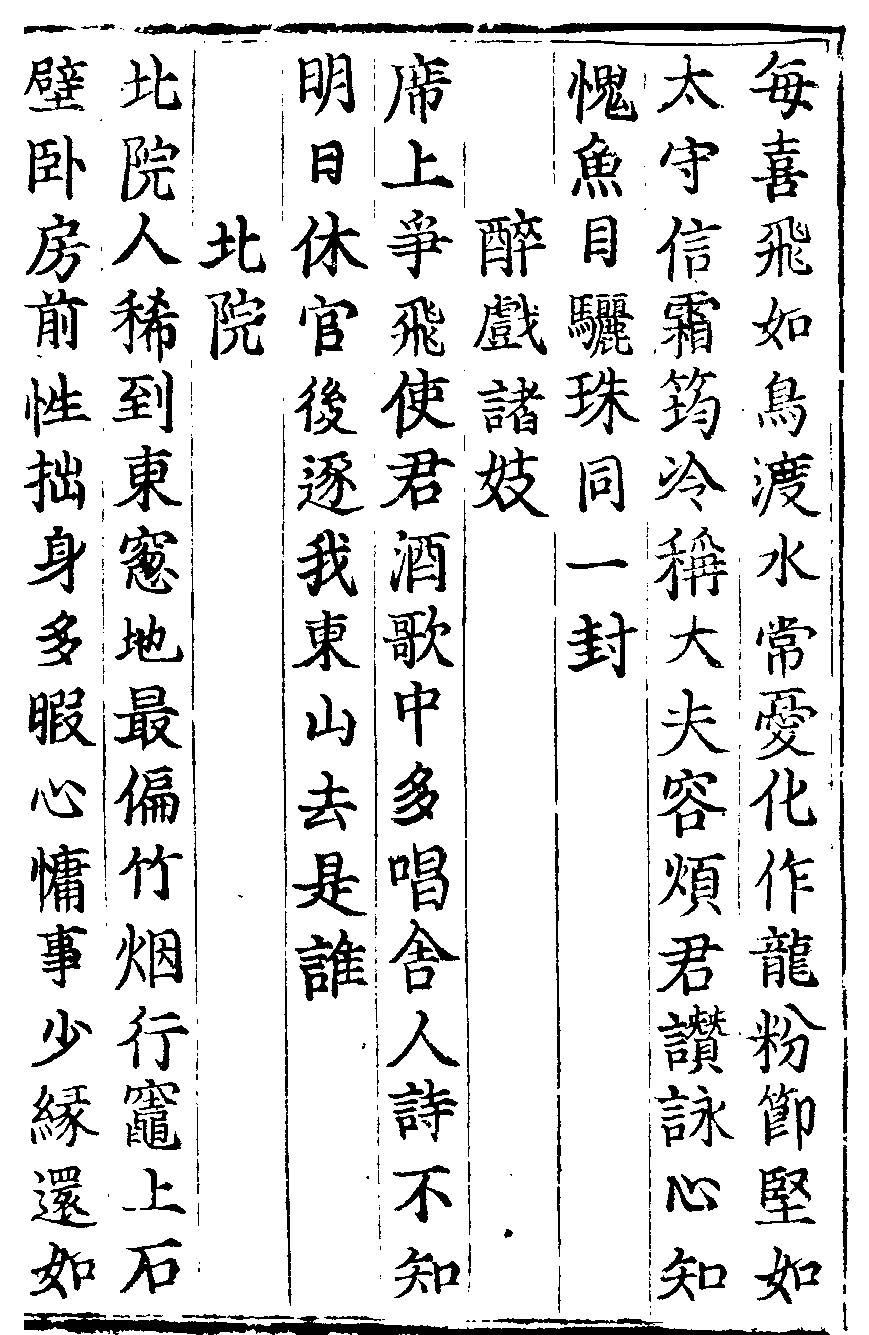 每喜飛如鳥渡水常憂化作龍粉節堅如
太守信霜筠冷稱大夫容煩君讃詠心知
愧魚目驪珠同一封
醉戲諸妓
席上爭飛使君酒歌中多唱舍人詩不知
明日休官後逐我東山去是誰
北院
北院人稀到東窻地最偏竹烟行竈上石
壁卧房前性拙身多暇心慵事少緣還如